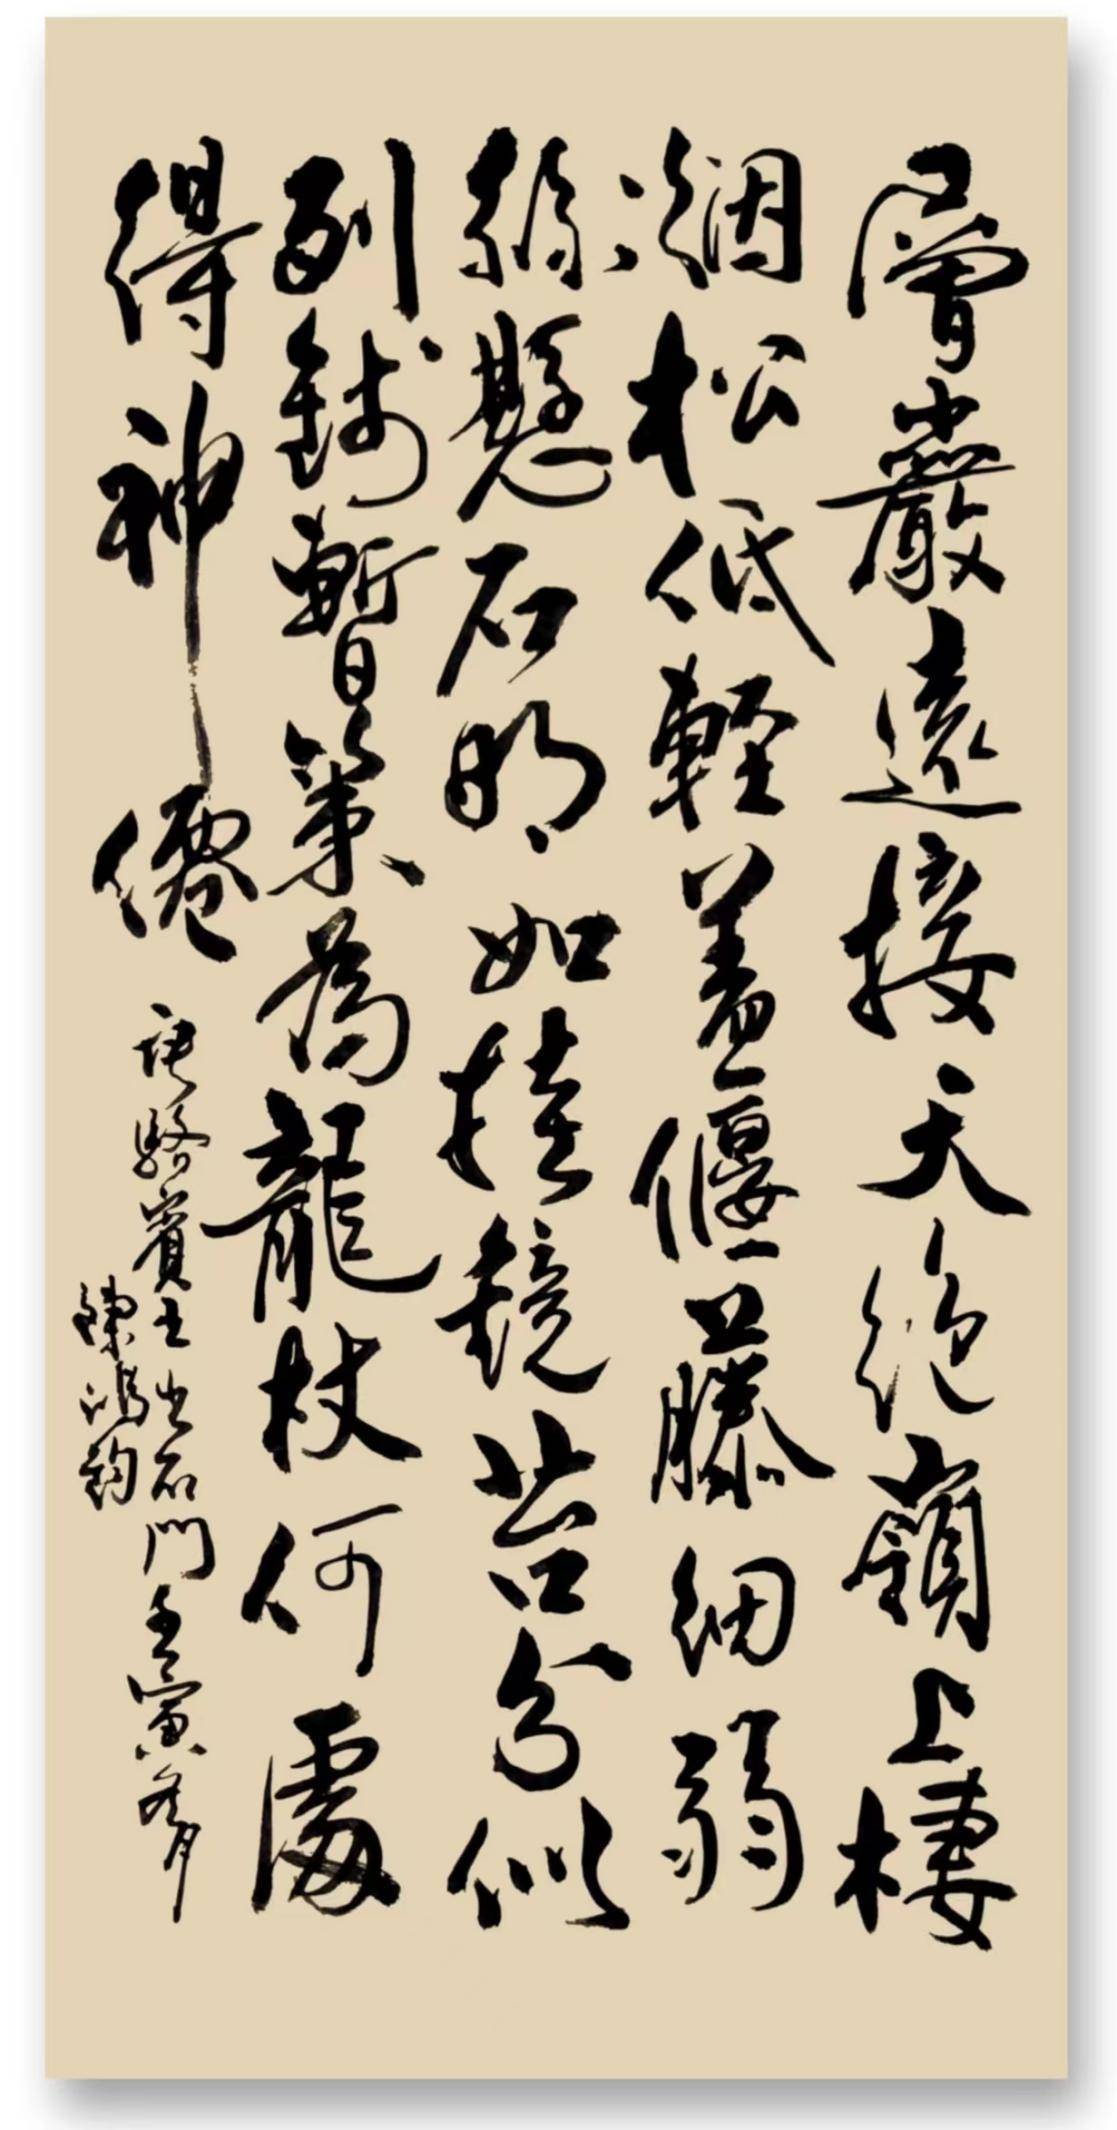 層巖遠接天絕嶺上棲
烟松低輕蓋偃藤細弱
絲懸石明如挂鏡苔分似
列錢暫策為龍杖何處
得神僊
駱賓王出石門壬寅冬月
鴻鈞